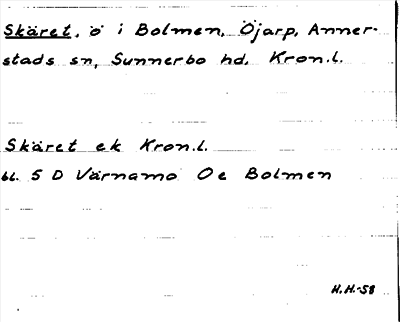 Skäret, ö i Bolmen, Öjarp, Anner-
stads sn, Sunnerbo hd. Kron.l.
Skäret ek Kron.l.
bl. 5 D Värnamo Oe Bolmen
H.H.-58